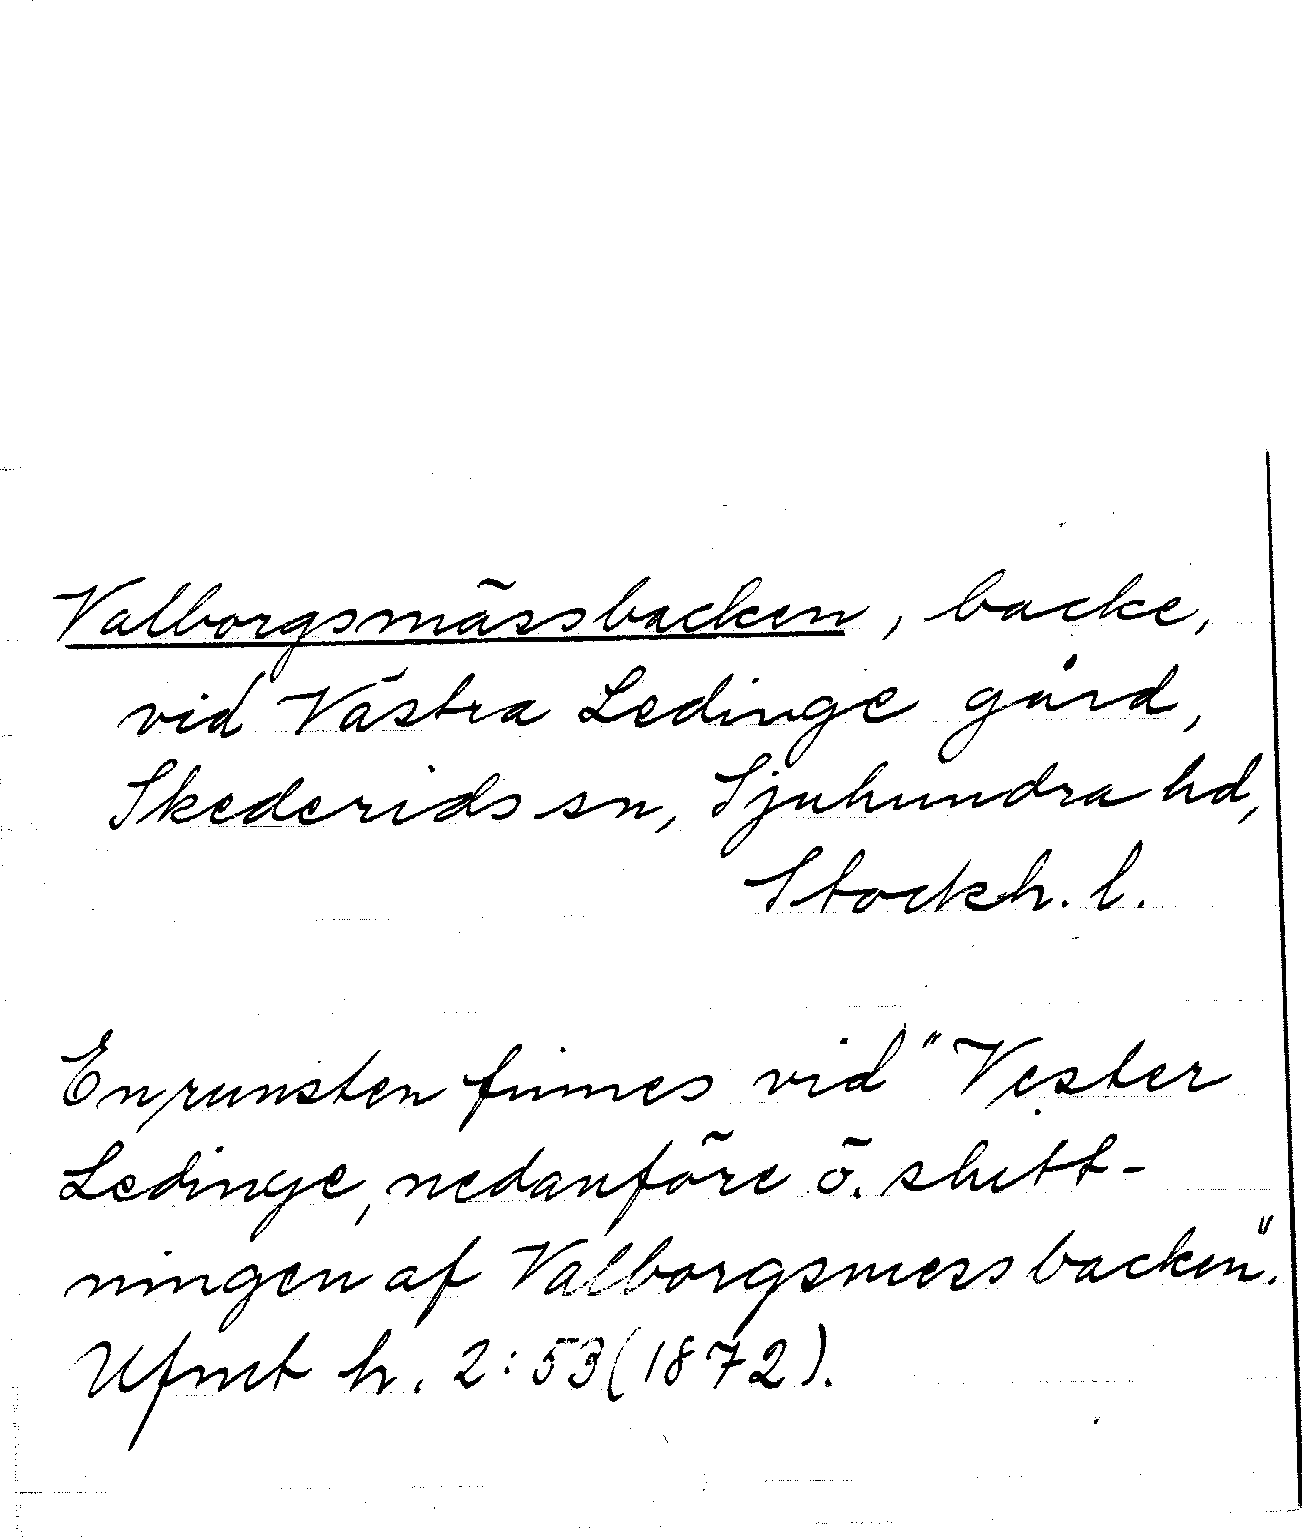 Valborgsmässbacken, backe,
vid Västra Ledinge gård,
Skederids sn, Sjuhundra hd,
Stockh. l.
En runsten finnes vid "Vester
Ledinge, nedanföre ö. slutt-
ningen af Valborgsmessbacken".
Ufmt h. 2:53 (1872).